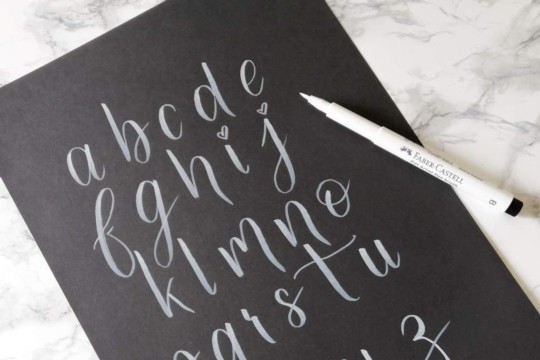 a b c d e
f g h i j
k l m n o
p q r s t u
z
FABER-CASTELL
B